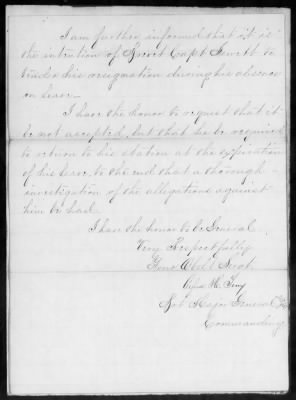 I am further informed that it is
the intention of Brevet Capt. to
tender his resignation during his absence
on leave.
I have the honor to request that it
be not accepted, but that he be required
to return to his station at the expiration
of his leave, to the end that a thorough
investigation of the allegations against
him be had.
I have the honor to be General
Very Respectfully
Your Obdt Servt
Alfred H. Terry
Bvt Major General
Commanding